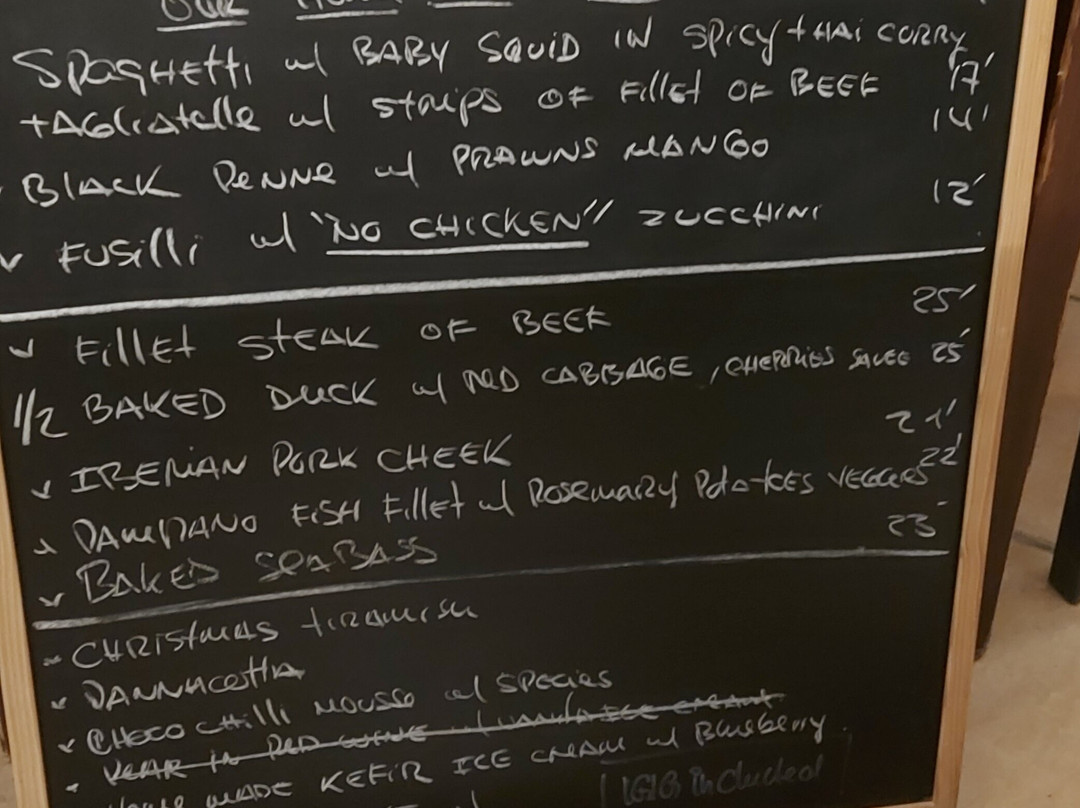 OUR HOME
SPAGHETTI w/ BABY SQUID IN SPICY tHAI CORRY
tAGLIAtelle w/ strips OF Fillet OF BEEF 17'
BLACK PENNE w/ PRAWNS MANGO 14'
v FUSilli w/ "NO CHICKEN" ZUCCHINI 12'
v FillEt StEAK OF BEEF 25'
1/2 BAKED DUCK w/ RED CABBAGE, CHERRIES SAUCE 25'
v IBERIAN PORK CHEEK 21'
PAMPANO FISH Fillet w/ Rosemary PotatoES VEGGIES 22'
v BAKED SEABASS 23'
- CHRISTMAS tIRAMISU
PANNACOttA
v CHOCO CHilli MOUSSE w/ SPECIES
- PEAR in RED WINE w/ VANILA ICE CREAM
HOME MADE KEFIR ICE CREAM w/ Blueberry.
IGIG included